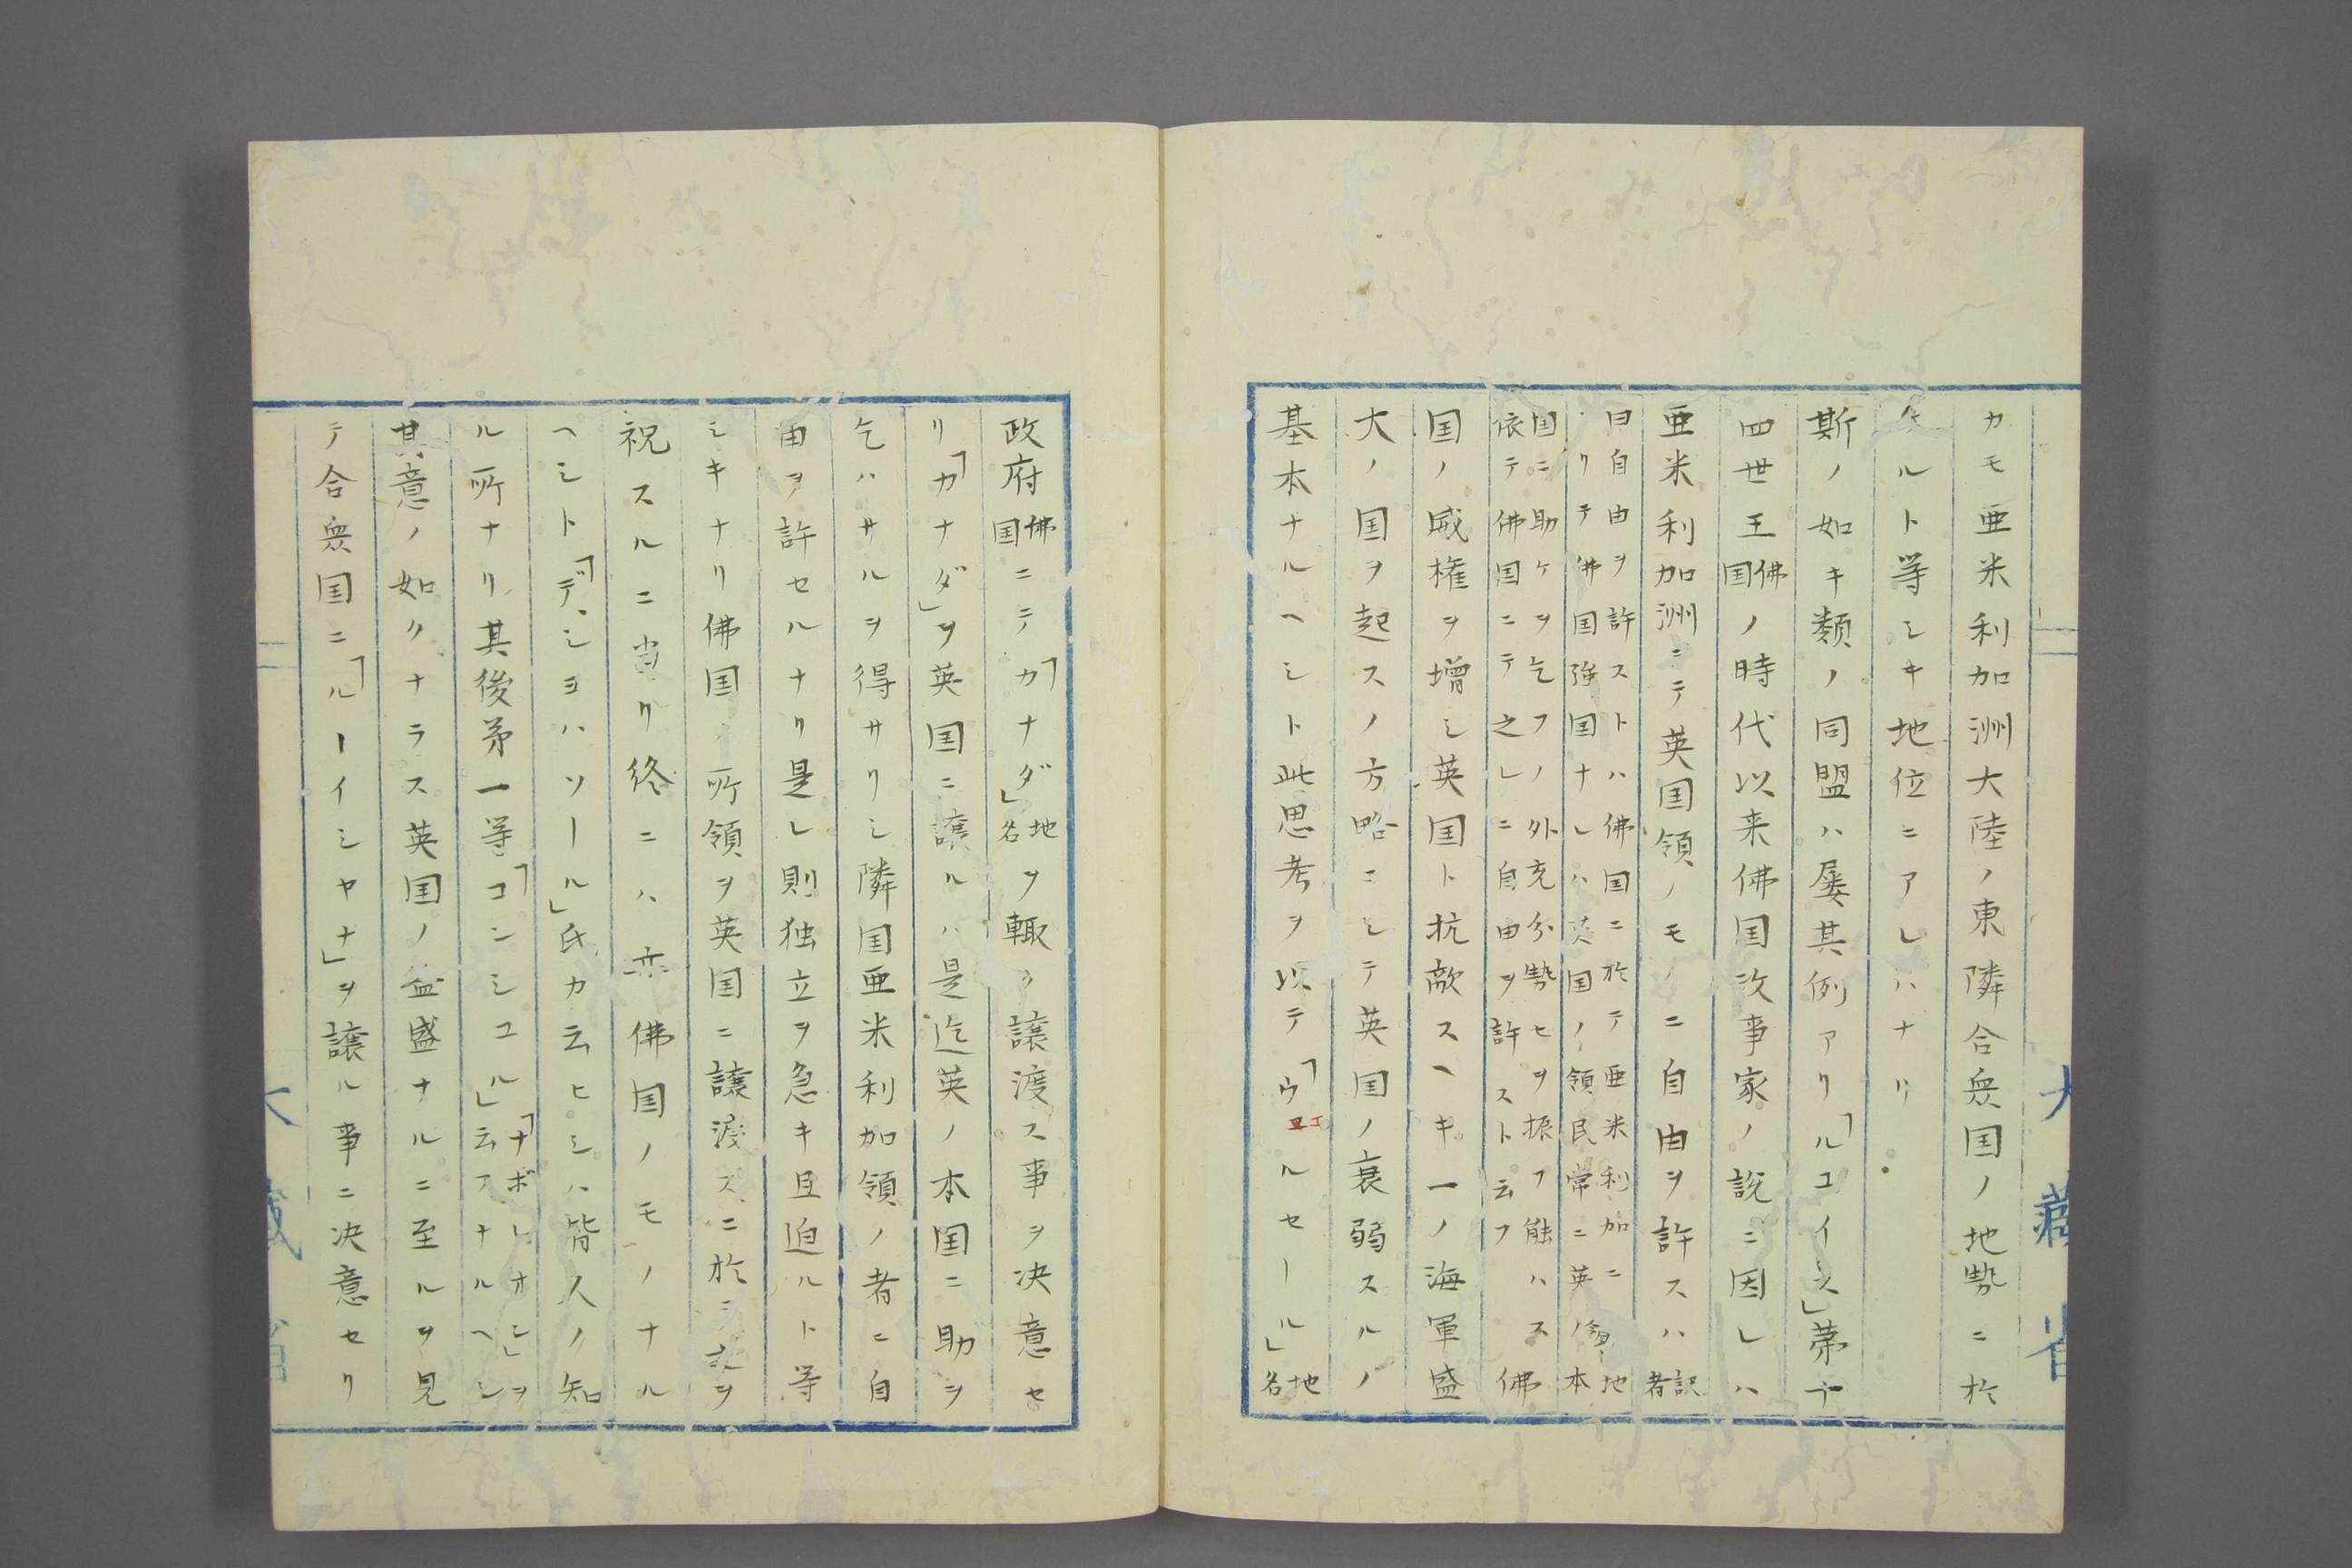 カモ亜米利加洲大陸ノ東隣合衆国ノ地勢ニ於
ケルト等シキ地位ニアレハナリ
斯ノ如キ類ノ同盟ハ屡其例アリ「ルユイス」第十
四世王佛国ノ時代以来佛国政事家ノ説ニ因レハ
亜米利加洲ニテ英国領ノモノニ自由ヲ許スハ訳者
曰自由ヲ許ストハ佛国ニ於テ亜米利加ニ
リテ佛国強国ナレハ英国ノ領民常ニ英ノ本
国ニ助ケヲ乞フノ外充分勢セヲ振フ能ハス佛
依テ佛国ニテ之レニ自由ヲ許スト云フ
国ノ威権ヲ増シ英国ト抗敵スヘキ一ノ海軍盛
大ノ国ヲ起スノ方略ニシテ英国ノ衰弱スルノ
基本ナルヘシト此思考ヲ以テ「ウエルセール」地名
大藏省
政府佛国ニテ「カナダ」地名ヲ輙ク譲渡ス事ヲ决意セ
リ「カナダ」ヲ英国ニ譲ルハ是迄英ノ本国ニ助ヲ
乞ハサルヲ得サリシ隣国亜米利加領ノ者ニ自
由ヲ許セルナリ是レ則独立ヲ急キ且迫ルト等
シキナリ佛国ノ所領ヲ英国ニ譲渡スニ於テヲ
祝スルニ当リ終ニハ亦佛国ノモノナル
ヘシト「デ、シヨハソール」氏カ云ヒシハ皆人ノ知
ル所ナリ其後第一等「コンシユル」「ナポレオン」ヲ云フナルヘシ
其意ノ如クナラス英国ノ益盛ナルニ至ルヲ見
テ合衆国ニ「ルーイシヤナ」ヲ譲ル事ニ决意セリ
大藏省